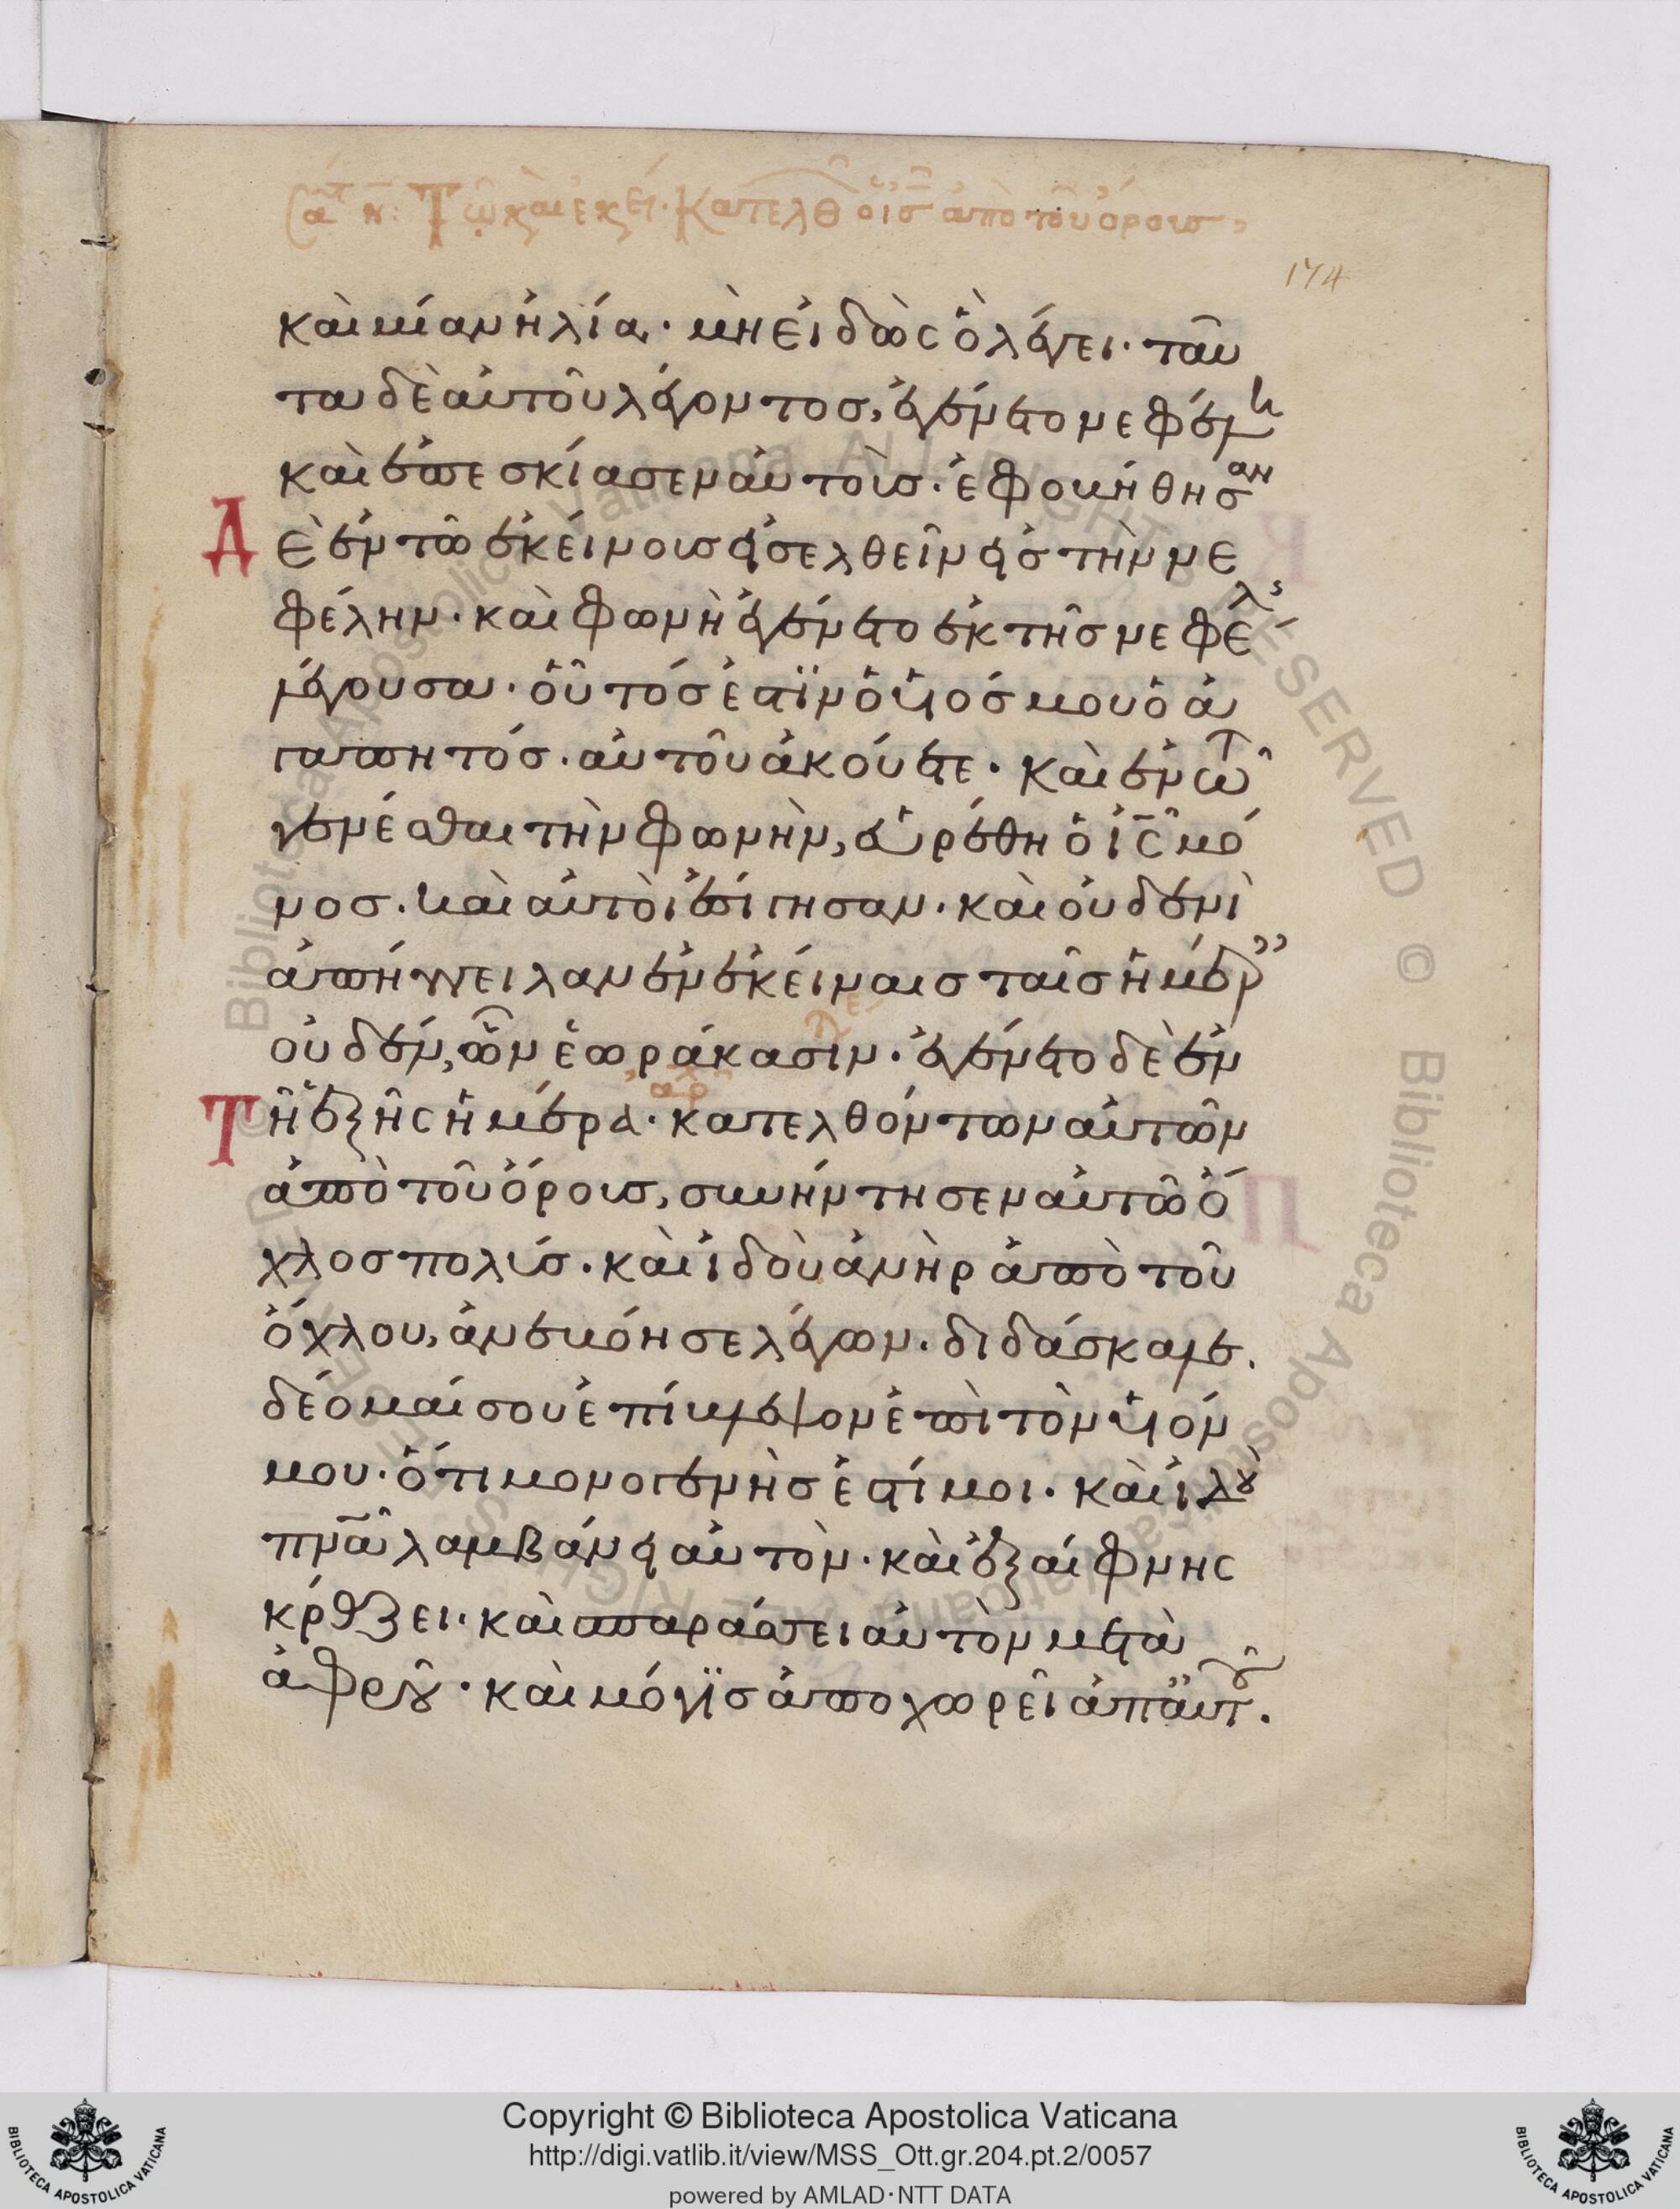 Σα ν: Τῷ καιρῷ ἐκεί· Κατελθ ὁ ἰς ἀπὸ τοῦ ὄρους,
174
καὶ μίαν ἠλία· μὴ εἰδὼς ὃ λέγει· ταῦ
τα δὲ αὐτοῦ λέγοντος, ἐγένετο νεφέλη
καὶ ἐπεσκίασεν αὐτούς· ἐφοβήθησαν
Δ ὲ ἐν τῶ ἐκείνους εἰσελθεῖν εἰς τὴν νε
φέλην· καὶ φωνὴ ἐγένετο ἐκ τῆς νεφέλ
λέγουσα· οὗτός ἐστϊν ὁ υἱός μου ὁ ἀ
γαπητός· αὐτοῦ ἀκούετε· καὶ ἐν τῶ
γενέσθαι τὴν φωνὴν, εὑρέθη ὁ ἰς μό
νος· καὶ αὐτοὶ ἐσίγησαν· καὶ οὐδενὶ
ἀπήγγειλαν ἐν ἐκείναις ταῖς ἡμέρ
οὐδὲν, ὧν ἑωράκασιν· ἐγένετο δὲ ἐν
Τ ῆ ἑξῆς ἡμέρα· κατελθόντων αὐτῶν
ἀπὸ τοῦ ὄρους, συνήντησεν αὐτῶ ὄ
χλος πολύς· καὶ ἰδοὺ ἀνὴρ ἀπὸ τοῦ
ὄχλου, ἀνεβόησε λέγων· διδάσκαλε·
δέομαί σου ἐπίβλεψον ἐπὶ τὸν υἱόν
μου· ὅτι μονογενὴς ἐστί μοι· καὶ ἰδοὺ
πνᾶ λαμβάνει αὐτὸν· καὶ ἐξαίφνης
κράζει· καὶ σπαράσσει αὐτὸν μετὰ
ἀφροῦ· καὶ μόγϊς ἀποχωρεῖ ἀπ αὐτοῦ·
Copyright © Biblioteca Apostolica Vaticana
http://digi.vatlib.it/view/MSS_Ott.gr.204.pt.2/0057
powered by AMLAD·NTT DATA